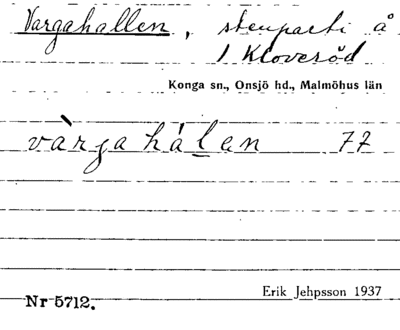 Vargahallen, stenparti å
1 Kloveröd
Konga sn., Onsjö hd., Malmöhus län
vàrgahálen 77
Erik Jehpsson 1937
Nr 5712.